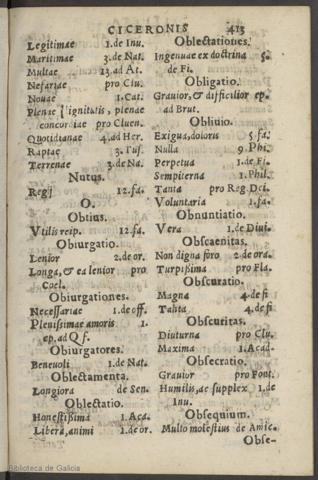 CICERONIS 413
Legitimae 1.de Inu.
Maritimae 3.de Nat.
Multae 13.ad At.
Nefariae pro Clu.
Nouae 1.Cat.
Plenae dignitatis, plenae
concordiae pro Cluen.
Quotidianae 4.ad Her.
Raptae 3.Tus.
Terrenae 3.de Na.
Nutus.
Regij 12.fa.
O.
Obtius.
Vtilis reip. 12.fa.
Obiurgatio.
Lenior 2.de or.
Longa, & ea lenior pro
Coel.
Obiurgationes.
Necessariae 1.de off.
Plenissimae amoris 1.
ep. ad Q f.
Obiurgatores.
Beneuoli 1.de Nat.
Oblectamenta.
Longiora de Sen.
Oblectatio.
Honestissima 1.Aca.
Libera, animi 1.de or.
Oblectationes.
Ingenuae ex doctrina 5.
de Fi.
Obligatio.
Grauior, & difficilior ep.
ad Brut.
Obliuio.
Exigua, doloris 5.fa.
Nulla 9.Phi.
Perpetua 1.de Fi.
Sempiterna 1.Phil.
Tanta pro Reg.Dei.
Voluntaria 1.fa.
Obnuntiatio.
Vera 1.de Diui.
Obscaenitas.
Non digna foro 2.de ora.
Turpissima pro Fla.
Obscuratio.
Magna 4.de fi
Tanta 4.de fi
Obscuritas.
Diuturna pro Clu.
Maxima 1.Acad.
Obsecratio.
Grauior pro Font.
Humilis, ac supplex 1.de
Inu.
Obsequium.
Multo molestius de Amic.
Obse-
Biblioteca de Galicia